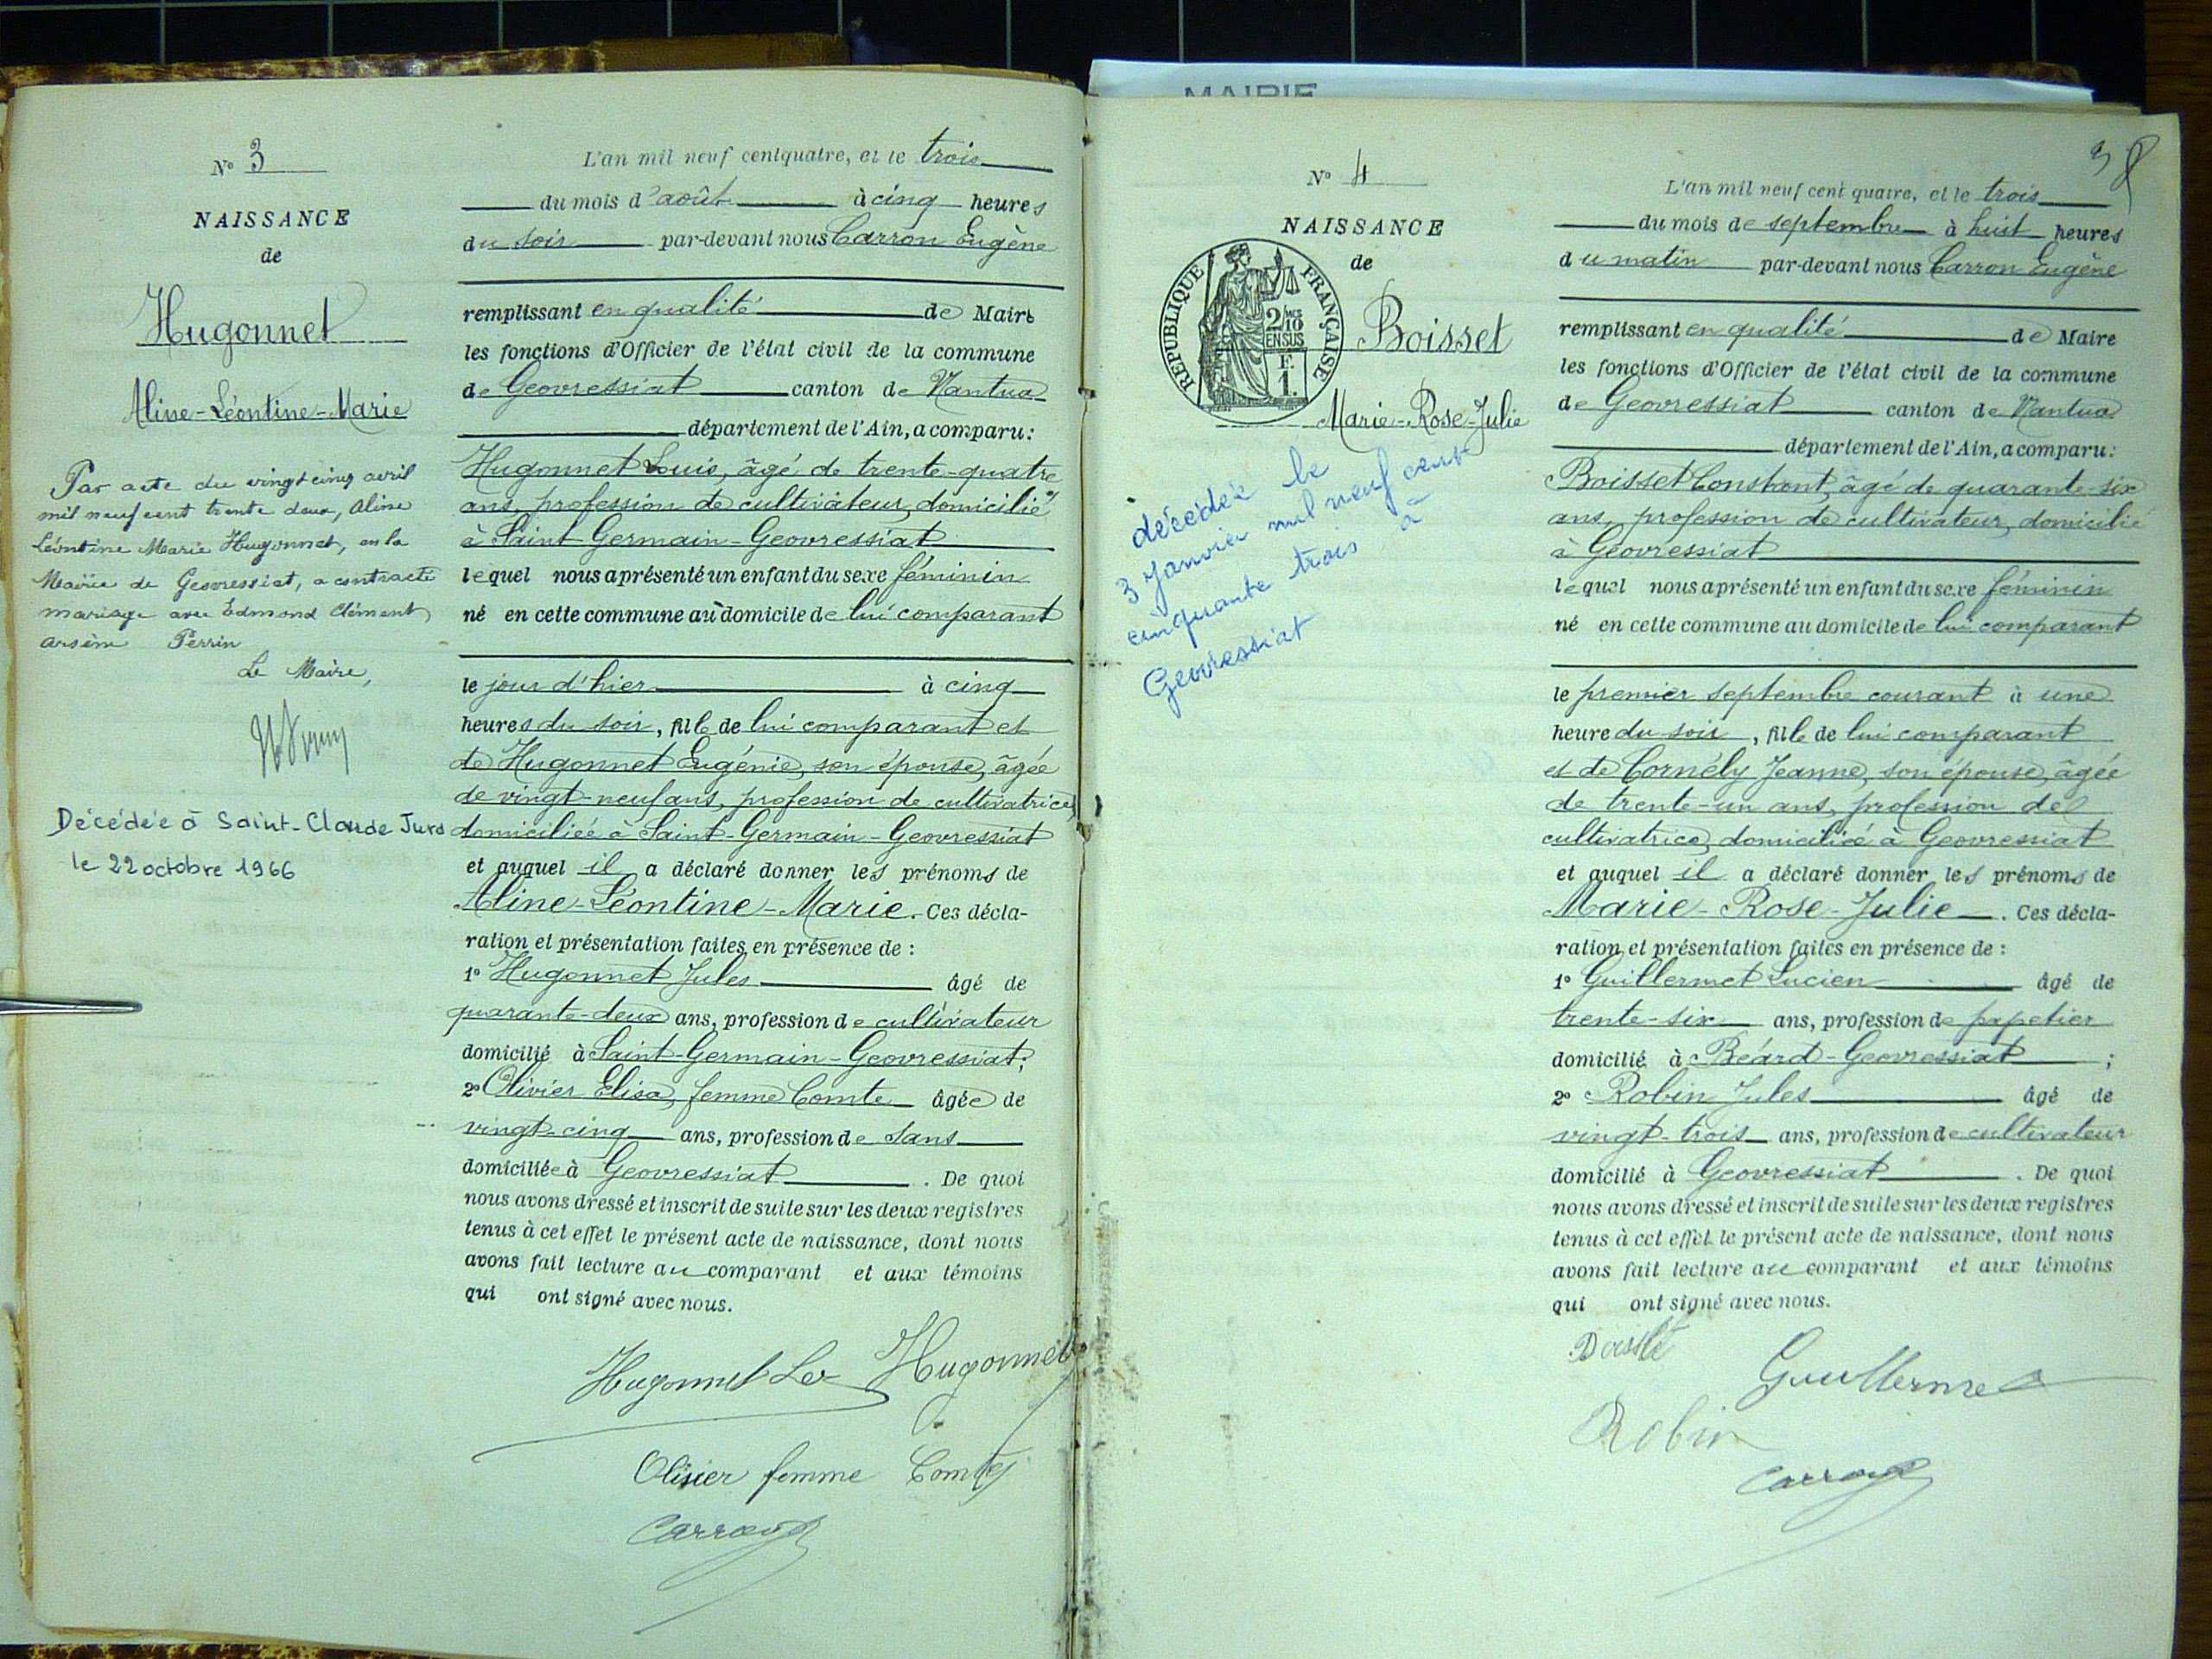 N° 3
NAISSANCE
de
Hugonnet
Aline-Léontine-Marie
Par acte du vingt cinq avril
mil neuf cent trente deux, Aline
Léontine Marie Hugonnet, en la
Mairie de Geovressiat, a contracté
mariage avec Edmond Clément
Arsène Perrin
Le Maire,
Décédée à Saint-Claude Jura
le 22 octobre 1966
L'an mil neuf cent quatre, et le trois
du mois d'août à cinq heures
du soir par-devant nous Carron Eugène
remplissant en qualité de Maire
les fonctions d'Officier de l'état civil de la commune
de Geovressiat canton de Nantua
département de l'Ain, a comparu:
Hugonnet Louis, âgé de trente-quatre
ans, profession de cultivateur, domicilié
à Saint Germain-Geovressiat
lequel nous a présenté un enfant du sexe féminin
né en cette commune au domicile de lui comparant
le jour d'hier à cinq
heures du soir, fille de lui comparant et
de Hugonnet Eugénie, son épouse, âgée
de vingt-neuf ans, profession de cultivatrice,
domiciliée à Saint-Germain-Geovressiat
et auquel il a déclaré donner les prénoms de
Aline-Léontine-Marie. Ces décla-
ration et présentation faites en présence de :
1° Hugonnet Jules âgé de
quarante-deux ans, profession de cultivateur
domicilié à Saint-Germain-Geovressiat;
2° Olivier Elisa, femme Comte âgée de
vingt-cinq ans, profession de sans
domiciliée à Geovressiat. De quoi
nous avons dressé et inscrit de suite sur les deux registres
tenus à cet effet le présent acte de naissance, dont nous
avons fait lecture au comparant et aux témoins
qui ont signé avec nous.
Hugonnet Hugonnet
Olivier femme Comte
Carron
MAIRIE
38
N° 4
NAISSANCE
de
REPUBLIQUE FRANÇAISE
2/10 EN SUS
F. 1.
Boisset
Marie-Rose-Julie
décédée le
3 janvier mil neuf cent
cinquante trois à
Geovressiat
L'an mil neuf cent quatre, et le trois
du mois de septembre à huit heures
du matin par-devant nous Carron Eugène
remplissant en qualité de Maire
les fonctions d'Officier de l'état civil de la commune
de Geovressiat canton de Nantua
département de l'Ain, a comparu:
Boisset Constant, âgé de quarante-six
ans, profession de cultivateur, domicilié
à Geovressiat
lequel nous a présenté un enfant du sexe féminin
né en cette commune au domicile de lui comparant
le premier septembre courant à une
heure du soir, fille de lui comparant
et de Cornély Jeanne, son épouse, âgée
de trente-un ans, profession de
cultivatrice, domiciliée à Geovressiat
et auquel il a déclaré donner les prénoms de
Marie-Rose-Julie. Ces décla-
ration et présentation faites en présence de :
1° Guillermet Lucien âgé de
trente-six ans, profession de papetier
domicilié à Béard-Geovressiat ;
2° Robin Jules âgé de
vingt-trois ans, profession de cultivateur
domicilié à Geovressiat. De quoi
nous avons dressé et inscrit de suite sur les deux registres
tenus à cet effet le présent acte de naissance, dont nous
avons fait lecture au comparant et aux témoins
qui ont signé avec nous.
Guillermet
Robin
Carron